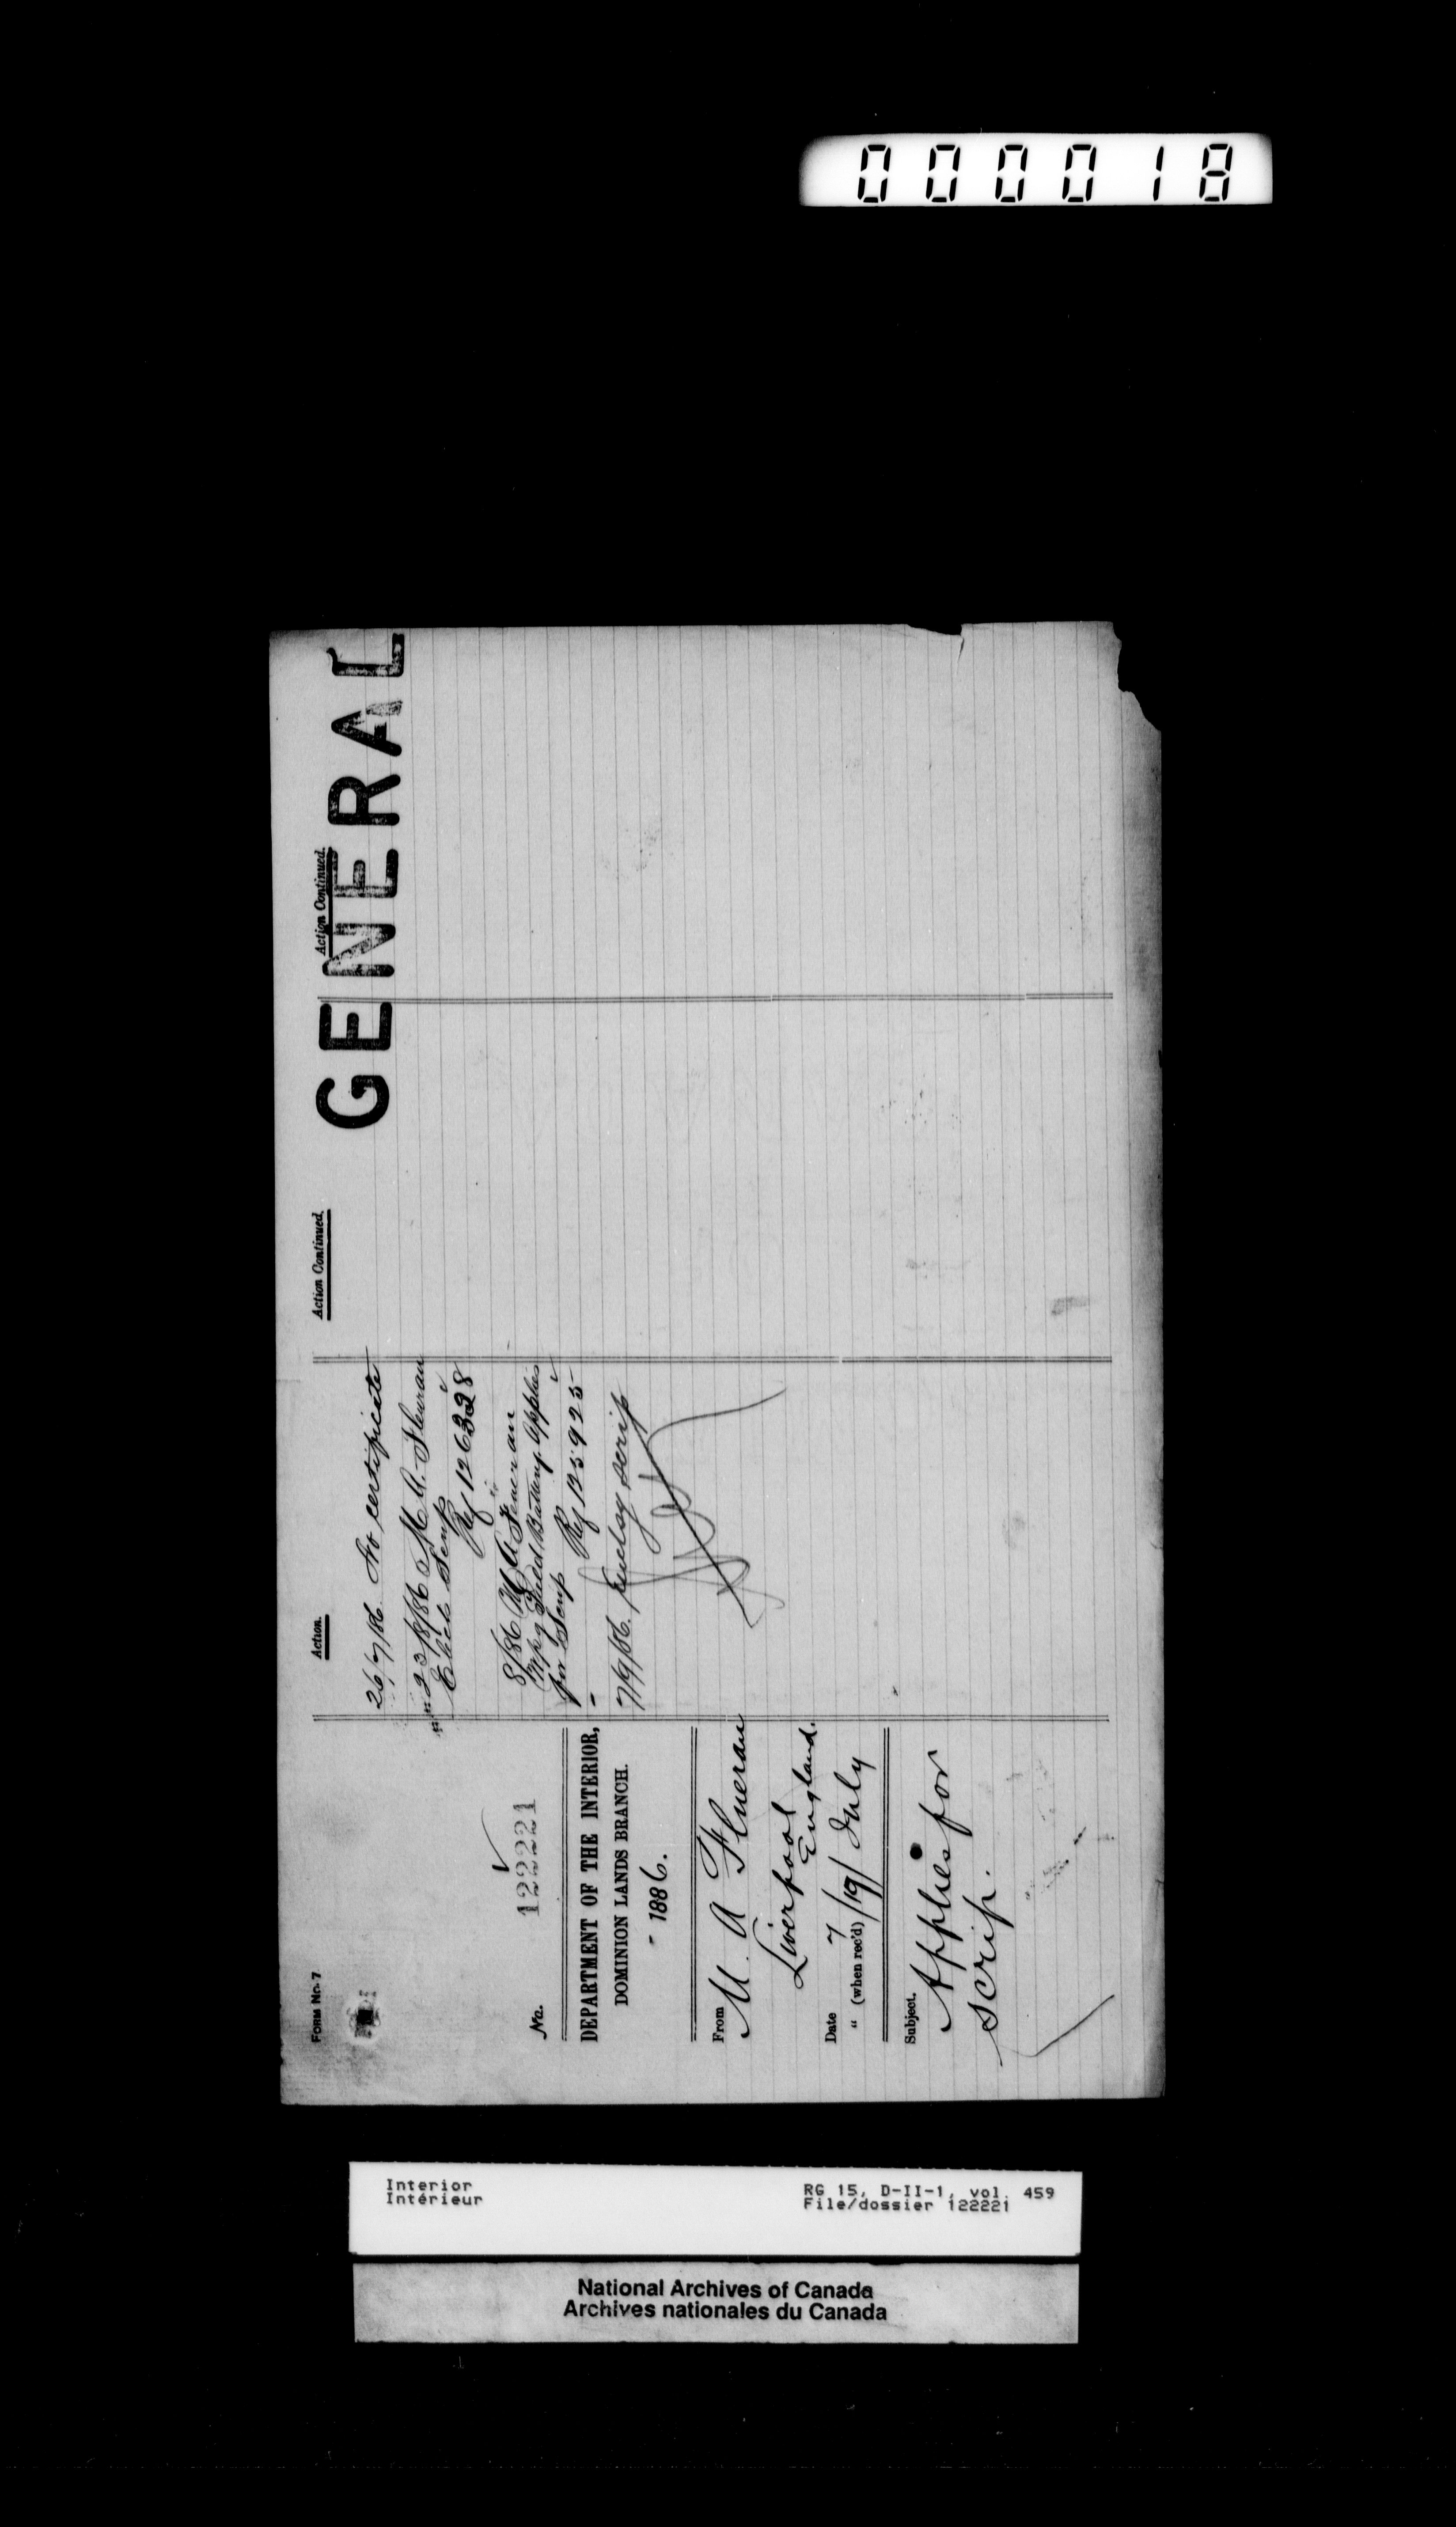 000018
FORM No. 7
No. 122221
DEPARTMENT OF THE INTERIOR,
DOMINION LANDS BRANCH.
- 1886.
From M. A. Flueran
Liverpool
England.
Date 7
" (when rec'd) /19/ July
Subject.
Applies for
scrip.
Action.
26/7/86. No certificate
23/8/86 M. A. Flueran
Scrip
Ref 126328
8/86 M A Flueran
Wpg Field Battery. Applies
for Scrip Ref 125925
7/9/86. Enclog scrip
Action Continued.
Action Continued.
GENERAL
Interior
Intérieur
RG 15, D-II-1, vol. 459
File/dossier 122221
National Archives of Canada
Archives nationales du Canada